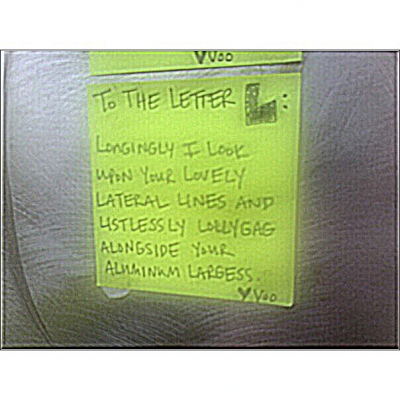 ♥ Voo
To THE LETTER L:
LONGINGLY I LOOK
UPON YOUR LOVELY
LATERAL LINES AND
LISTLESSLY LOLLYGAG
ALONGSIDE YOUR
ALUMINUM LARGESS.
♥ Voo